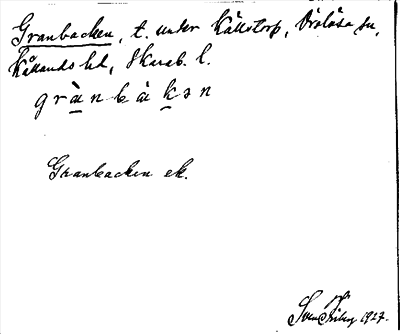 Granbacken, t. under Källstorp, Örslösa sn,
Kållands hd, Skarab. l.
grànbàkən
Granbacken ek.
Sven 1927.